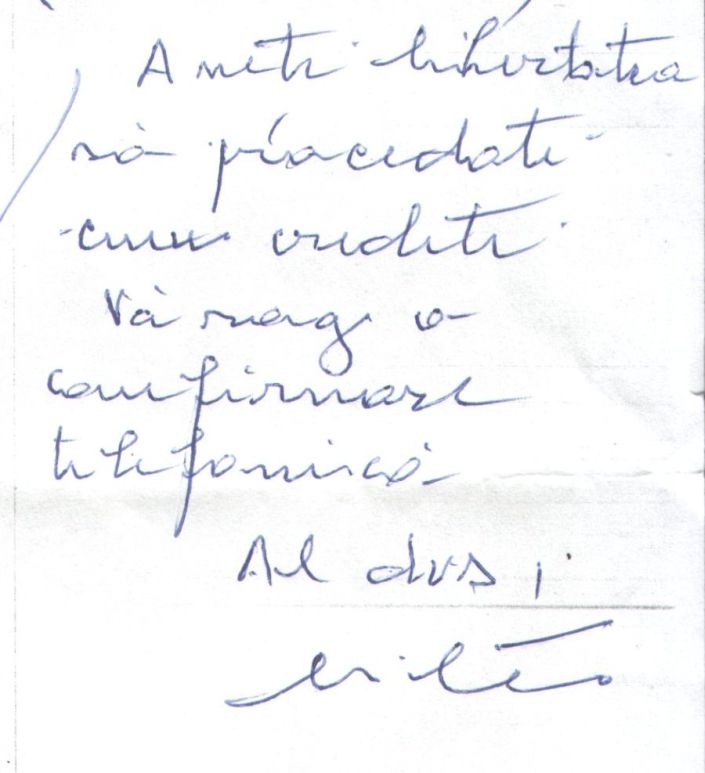 Aveti libertatea
să procedati
cum credeti.
Vă rog o
confirmare
telefonică
Al dvs,